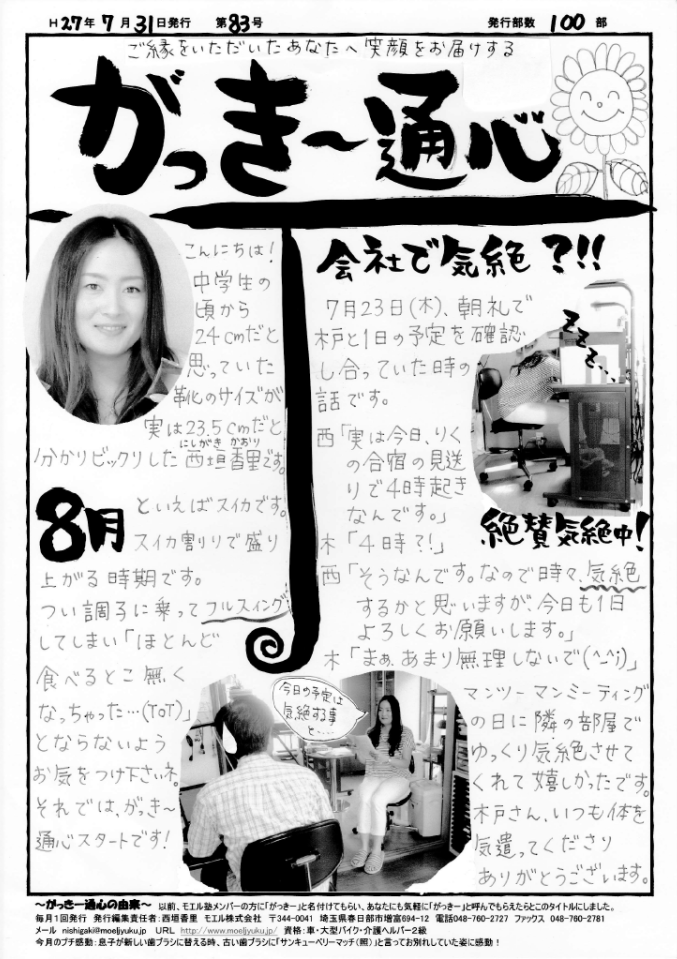 H27年 7月31日発行 第83号 発行部数 100 部
ご縁をいただいたあなたへ笑顔をお届けする
がっき～通心
こんにちは!
中学生の
頃から
24cmだと
思っていた
靴のサイズが
実は23.5cmだと
にしがき かおり
分かりビックリした西垣香里です。
8月
といえばスイカです。
スイカ割りで盛り
上がる時期です。
つい調子に乗ってフルスイング
してしまい「ほとんど
食べるとこ無く
なっちゃった…(ToT)」
とならないよう
お気をつけ下さいネ。
それでは、がっき～
通心スタートです!
会社で気絶?!!
7月23日(木)、朝礼で
木戸と1日の予定を確認
し合っていた時の
話です。
西「実は今日、りく
の合宿の見送
りで4時起き
なんです。」
木「4時?!」
西「そうなんです。なので時々、気絶
するかと思いますが、今日も1日
よろしくお願いします。」
木「まぁ、あまり無理しないで(^_^;)」
ZZZ...
絶賛気絶中!
今日の予定は
気絶する事
と…
マンツーマンミーティング
の日に隣の部屋で
ゆっくり気絶させて
くれて嬉しかったです。
木戸さん、いつも体を
気遣ってくださり
ありがとうございます。
～がっき～通心の由来～ 以前、モエル塾メンバーの方に「がっき～」と名付けてもらい、あなたにも気軽に「がっき～」と呼んでもらえたらとこのタイトルにしました。
毎月1回発行 発行編集責任者:西垣香里 モエル株式会社 〒344-0041 埼玉県春日部市増富694-12 電話048-760-2727 ファックス 048-760-2781
メール nishigaki@moeljyuku.jp URL http://www.moeljyuku.jp/ 資格:車・大型バイク・介護ヘルパー2級
今月のプチ感動:息子が新しい歯ブラシに替える時、古い歯ブラシに「サンキューベリーマッチ(照)」と言ってお別れしていた姿に感動!